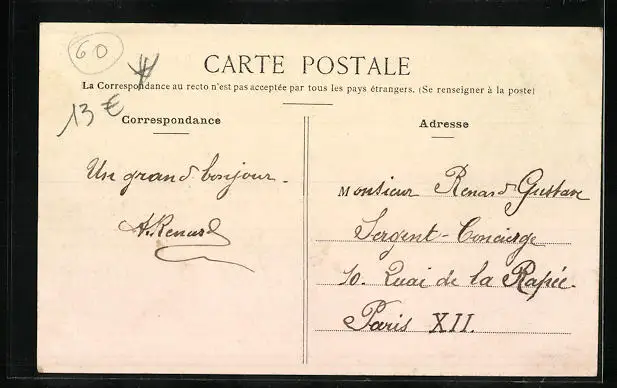 60
CARTE POSTALE
La Correspondance au recto n'est pas acceptée par tous les pays étrangers. (Se renseigner à la poste)
13 €
Correspondance
Adresse
Un grand bonjour.
A. Renard
Monsieur Renard Gustave
Sergent-Concierge
10. Quai de la Rapée.
Paris XII.